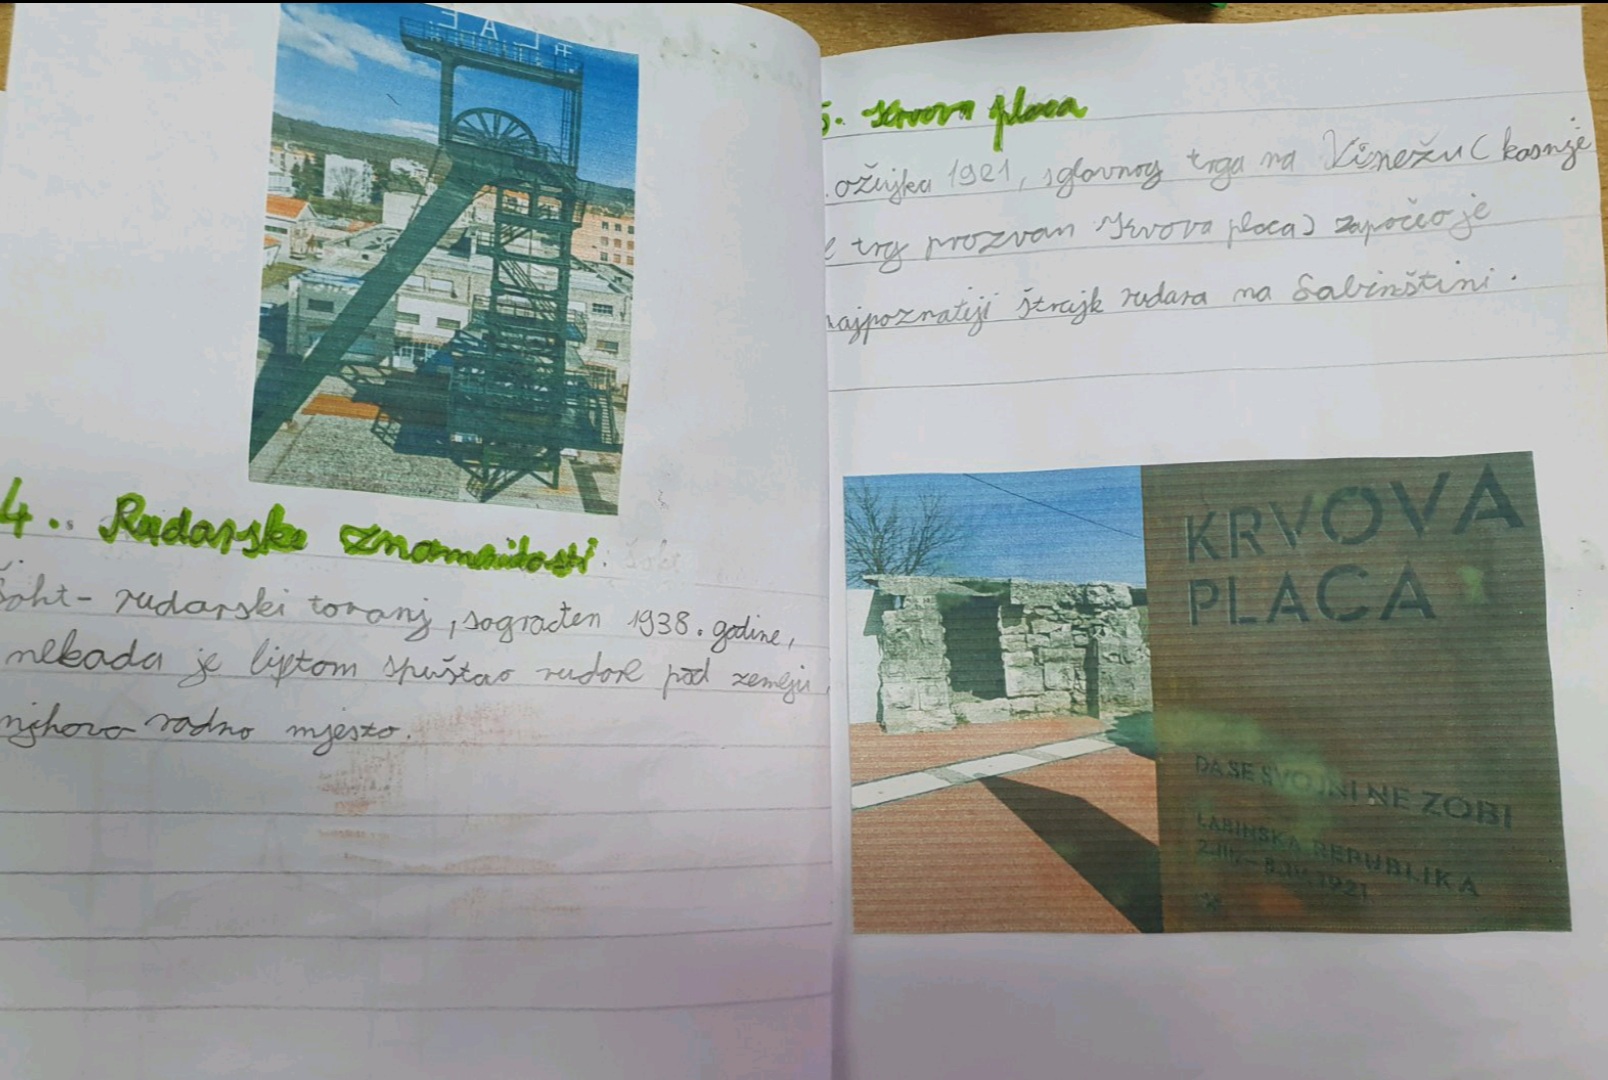 4. Rudarske znamenitosti
Šoht - rudarski toranj, sagrađen 1938. godine,
nekada je liftom spuštao rudare pod zemlju,
njihovo radno mjesto.
5. Krvova placa
. ožujka 1921, s glavnog trga na Vinežu ( kasnije
e trg prozvan Krvova placa) započeo je
najpoznatiji štrajk rudara na Labinštini.
KRVOVA
PLACA
DA SE SVOJNI NE ZOBI
LABINSKA REPUBLIKA
2.III.-8.IV.1921